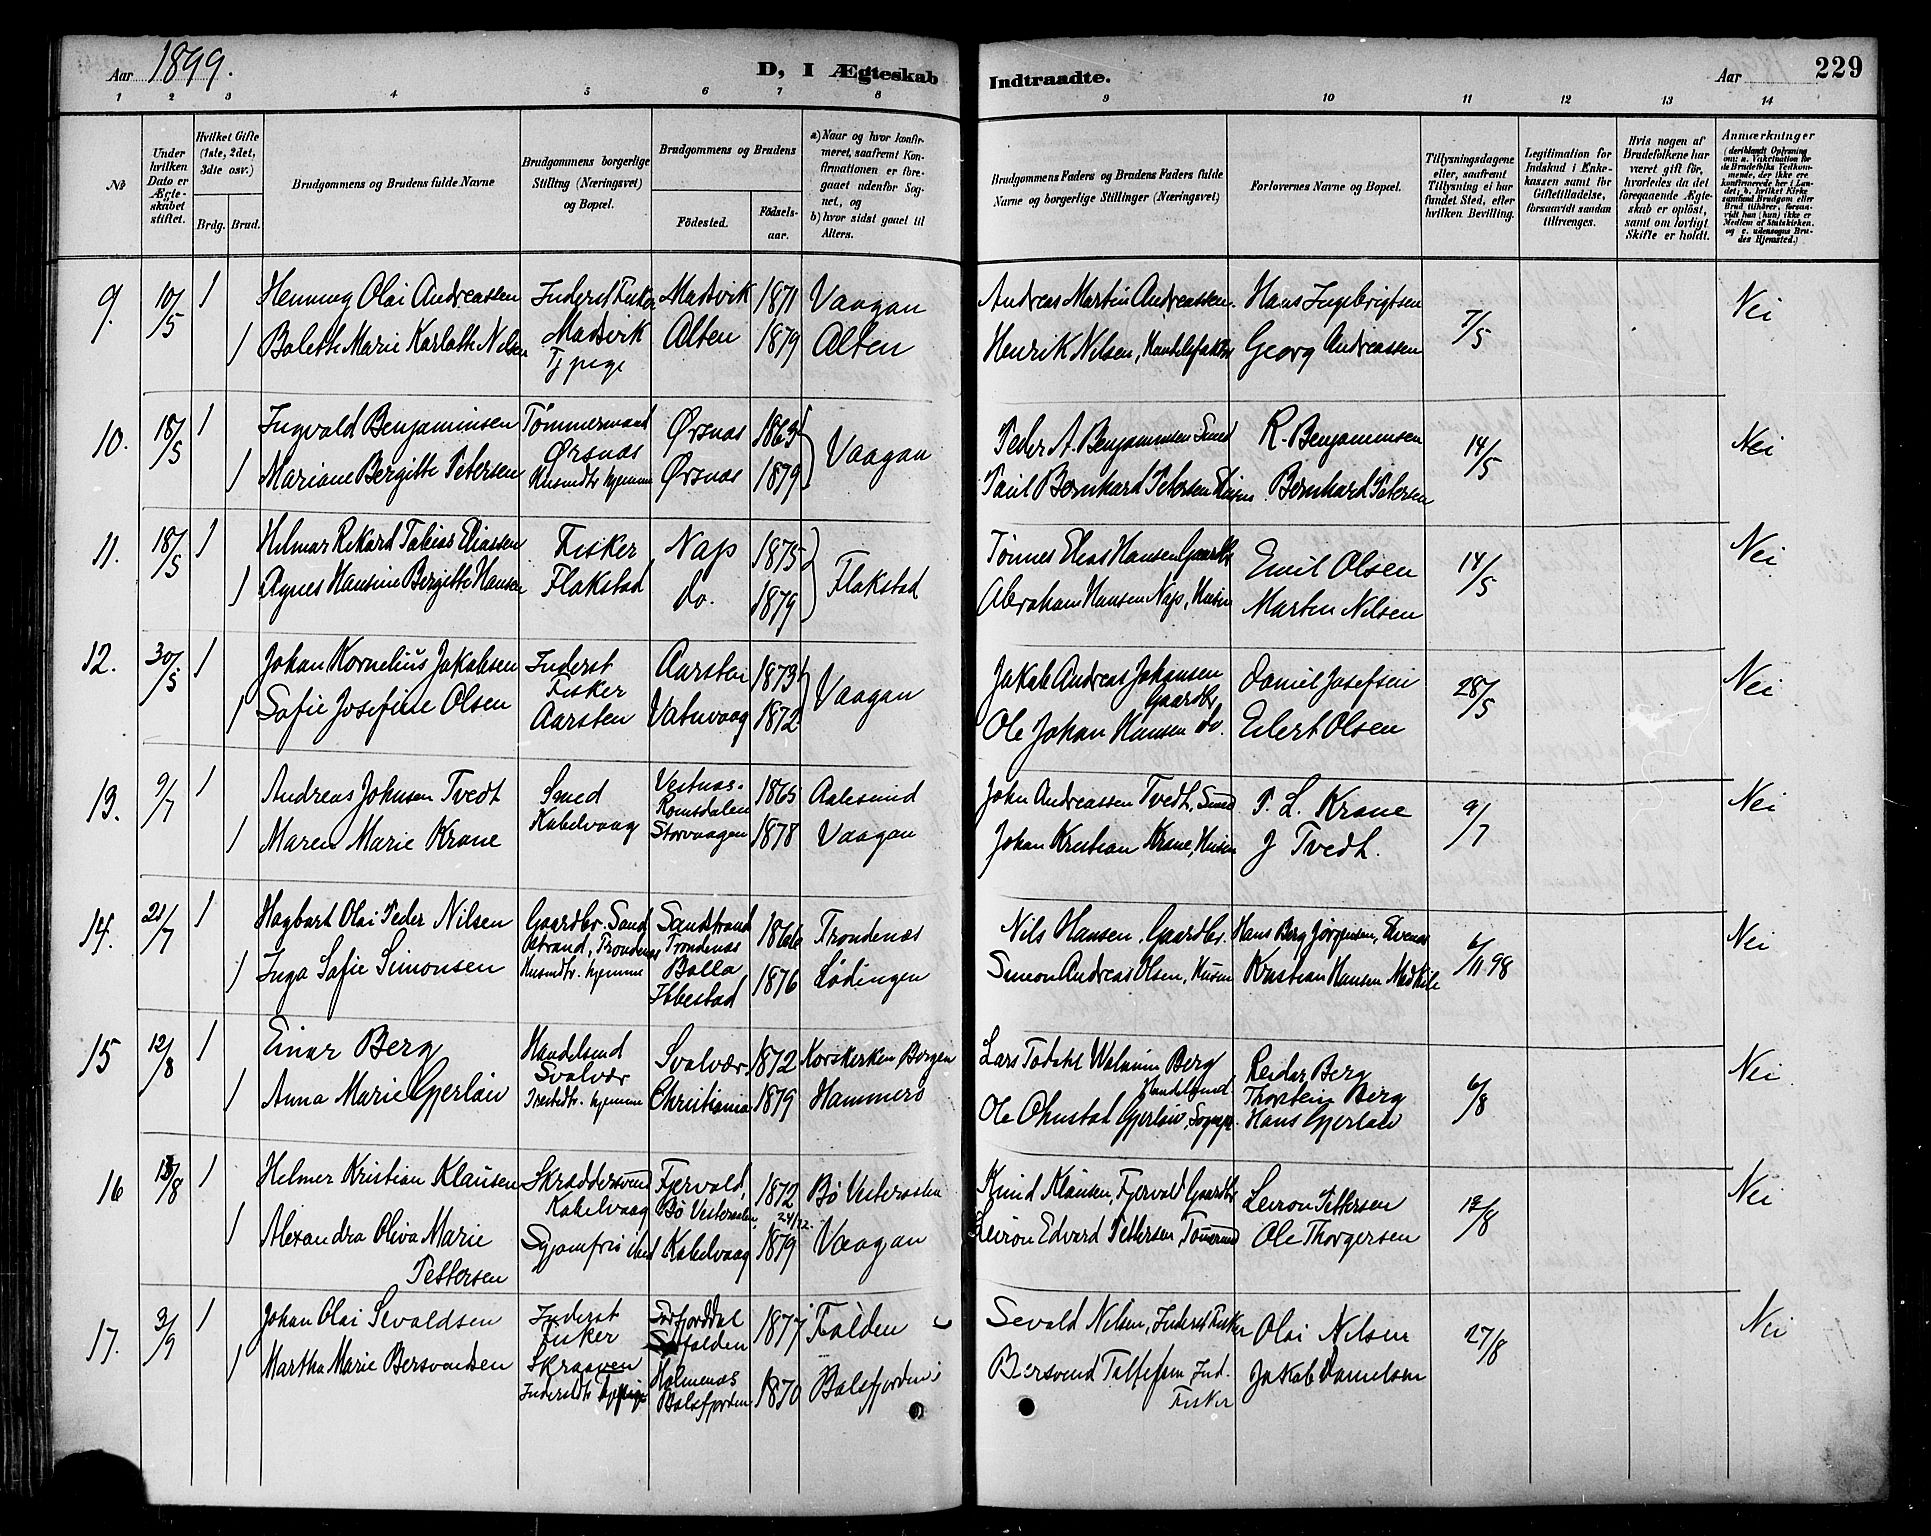 Aar 1899.
D, I Ægteskab Indtraadte.
Aar
229
1 2 3 4 5 6 7 8 9 10 11 12 13 14
No
Under hvilken Dato er Ægteskabet stiftet.
Hvilket Gifte (1ste, 2det, 3dte osv.)
Brdg. Brud.
Brudgommens og Brudens fulde Navne
Brudgommens borgerlige Stilling (Næringsvei) og Bopæl.
Brudgommens og Brudens
Fødested.
Fødselsaar.
a) Naar og hvor konfirmeret, saafremt Konfirmationen er foregaaet udenfor Sognet, og
b) hvor sidst gaaet til Alters.
Brudgommens Faders og Brudens Faders fulde Navne og borgerlige Stillinger (Næringsvei)
Forlovernes Navne og Bopæl.
Tillysningsdagene eller, saafremt Tillysning ei har fundet Sted, efter hvilken Bevilling.
Legitimation for Indskud i Enkekassen samt for Giftetilladelse, forsaavidt saadan tiltrænges.
Hvis nogen af Brudefolkene har været gift før, hvorledes da det foregaaende Ægteskab er opløst, samt om lovligt Skifte er holdt.
Anmærkninger
9. 10/5 1 Hemming Olai Andreassen Inderst Fisker Madsvik 1871 Vaagan Andreas Martin Andreassen. Hans Ingebrigtsen 7/5 Nei
1 Bolette Marie Karlotte Nilsen Madsvik Tj pige Alten 1879 Alten Henrik Nilsen, Handelsfaktor Georg Andreassen
10. 18/5 1 Ingvald Benjaminsen Tømmermand Ørsnæs Ørsnæs 1869 Vaagan Peder A. Benjaminsen Smed R. Benjamensen 14/5 Nei
1 Mariane Bergitte Petersen Husmdtr hjemme Ørsnæs 1879 Paul Bernhard Petersen Husm Bernhard Petersen
11. 18/5 1 Helmar Rikard Tobias Eliassen Fisker Nap 1875 Flakstad Tønnes Elias Hansen Gaardbr Emil Olsen 14/5 Nei
1 Agnes Hansine Bergitte Hansen Flakstad do. 1879 Abraham Hansen Nap, Husm Martin Nilsen
12. 30/5 1 Johan Kornelius Jakobsen Inderst Fisker Aarsten 1873 Vaagan Jakob Andreas Johansen Gaardbr Daniel Josefsen 28/5 Nei
1 Sofie Josefine Olsen Aarsten Vatnvaag 1872 Ole Johan Hansen do. Eilert Olsen
13. 9/7 1 Andreas Johnsen Tvedt Smed Kabelvaag Vestnæs. Romsdalen 1865 Aalesund John Andreassen Tvedt, Smed P. L. Krane 9/7 Nei
1 Maren Marie Krane Storvaagen 1878 Vaagan Johan Kristian Krane, Husm J Tvedt.
14. 21/7 1 Hagbart Olai Peder Nilsen Gaardbr. Sandstrand, Trondenæs Sandstrand Trondenæs 1866 Trondenæs Nils Hansen, Gaardbr. Hans Berg Jørgensen, Evenæs 6/11 98 Nei
1 Inga Sofie Simonsen Husmdtr. hjemme Bolla Ibbestad 1876 Lødingen Simon Andreas Olsen, Husm Kristian Hansen
15 12/8 1 Einar Berg Handelsmd Svolvær Svolvær 1872 Korskirken Bergen Lars Todahl Walnum Berg Handelsmd Reidar Berg Thorstein Berg 6/8 Nei
1 Anna Marie Gjerløw Præstedtr. hjemme Christiania 1879 Hammerø Ole Ohnstad Gjerløw, Sognepr. Hans Gjerløw
16 13/8 1 Helmer Kristian Klausen Skræddersvend Kabelvaag Fjærvold, Bø Vesteraalen 1872 Bø Vesteraalen Knud Klausen, Fjervold Gaardbr Leiron Pettersen 12/8 Nei
1 Alexandra Oliva Marie Pettersen Syjomfru ibid Kabelvaag 24/12 1879 Vaagan Leiron Edvard Pettersen, Tømmermd Ole Thorgersen
17. 3/9 1 Johan Olai Sevaldsen Inderst Fisker Sørfjorddal Sørfolden 1877 Folden Sevald Nilsen, Inderst Fisker Olai Nilsen 27/8 Nei
1 Martha Marie Bersvendsen Skraaven Inderstdtr Tj.pige Holmenæs Balsfjorden 1870 Balsfjorden Bersvend Tollefsen Ind. Fisker Jakob Danielsen